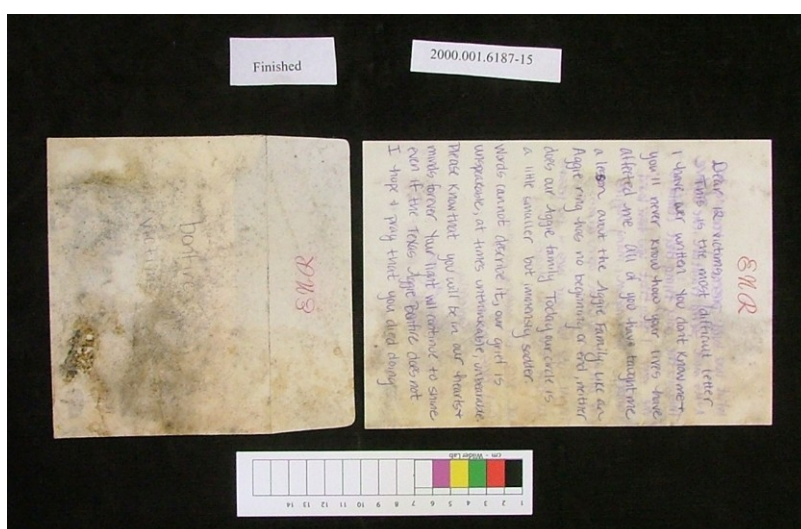 Finished
2000.001.6187-15
bonfire
victims
ENR
ENR
Dear Bonfire victims,
This is the most difficult letter
I have ever written. You don't know me &
you'll never know how your lives have
affected me. All of you have taught me
a lesson about the Aggie Family. Like an
Aggie ring has no beginning or end, neither
does our Aggie family. Today our circle is
a little smaller but immensly sadder.
Words cannot describe it, our grief is
unspeakable, at times unthinkable, unbearable
Please know that you will be in our hearts &
minds forever. Your light will continue to shine
even if the Texas Aggie Bonfire does not
I hope & pray that you died doing
cm - Wilder Lab
1 2 3 4 5 6 7 8 9 10 11 12 13 14